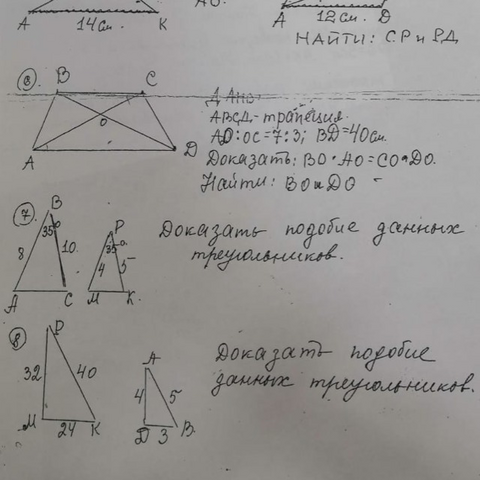 А 14см. К
А 12см. D
НАЙТИ: СР и РД
6 В С
О
А D
Дано:
АВСД-трапеция
АО:ОС=7:3; BD=40см.
Доказать: ВО·АО=СО·DO.
Найти: ВО и DO
7 В 35° 8 10 А С
Р 35° 4 5 М К.
Доказать подобие данных
треугольников.
8 Р 32 40 М 24 К
А 4 5 D 3 В
Доказать подобие
данных треугольников.